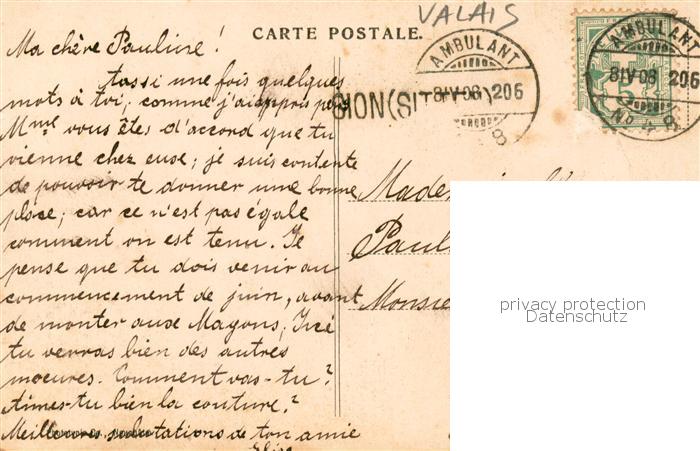 VALAIS
CARTE POSTALE.
AMBULANT
8IV08 206
No 8
SION (SITTEN)
AMBULANT
8IV08 206
No 8
5
Ma chère Pauline !
tassi une fois quelques
mots à toi, comme j'ai appris par
Mme vous êtes d'accord que tu
vienne chez euse; je suis contente
de pouvoir te donner une bonne
place; car ce n'est pas égale
comment on est tenu. Je
pense que tu dois venir au
commencement de juin, avant
de monter ause Mayons; Ici
tu verras bien des autres
moeures. Comment vas-tu?
Aimes-tu bien la couture?
Meilleures salutations de ton amie
Elise
Madem
Paul
Monsie
privacy protection
Datenschutz